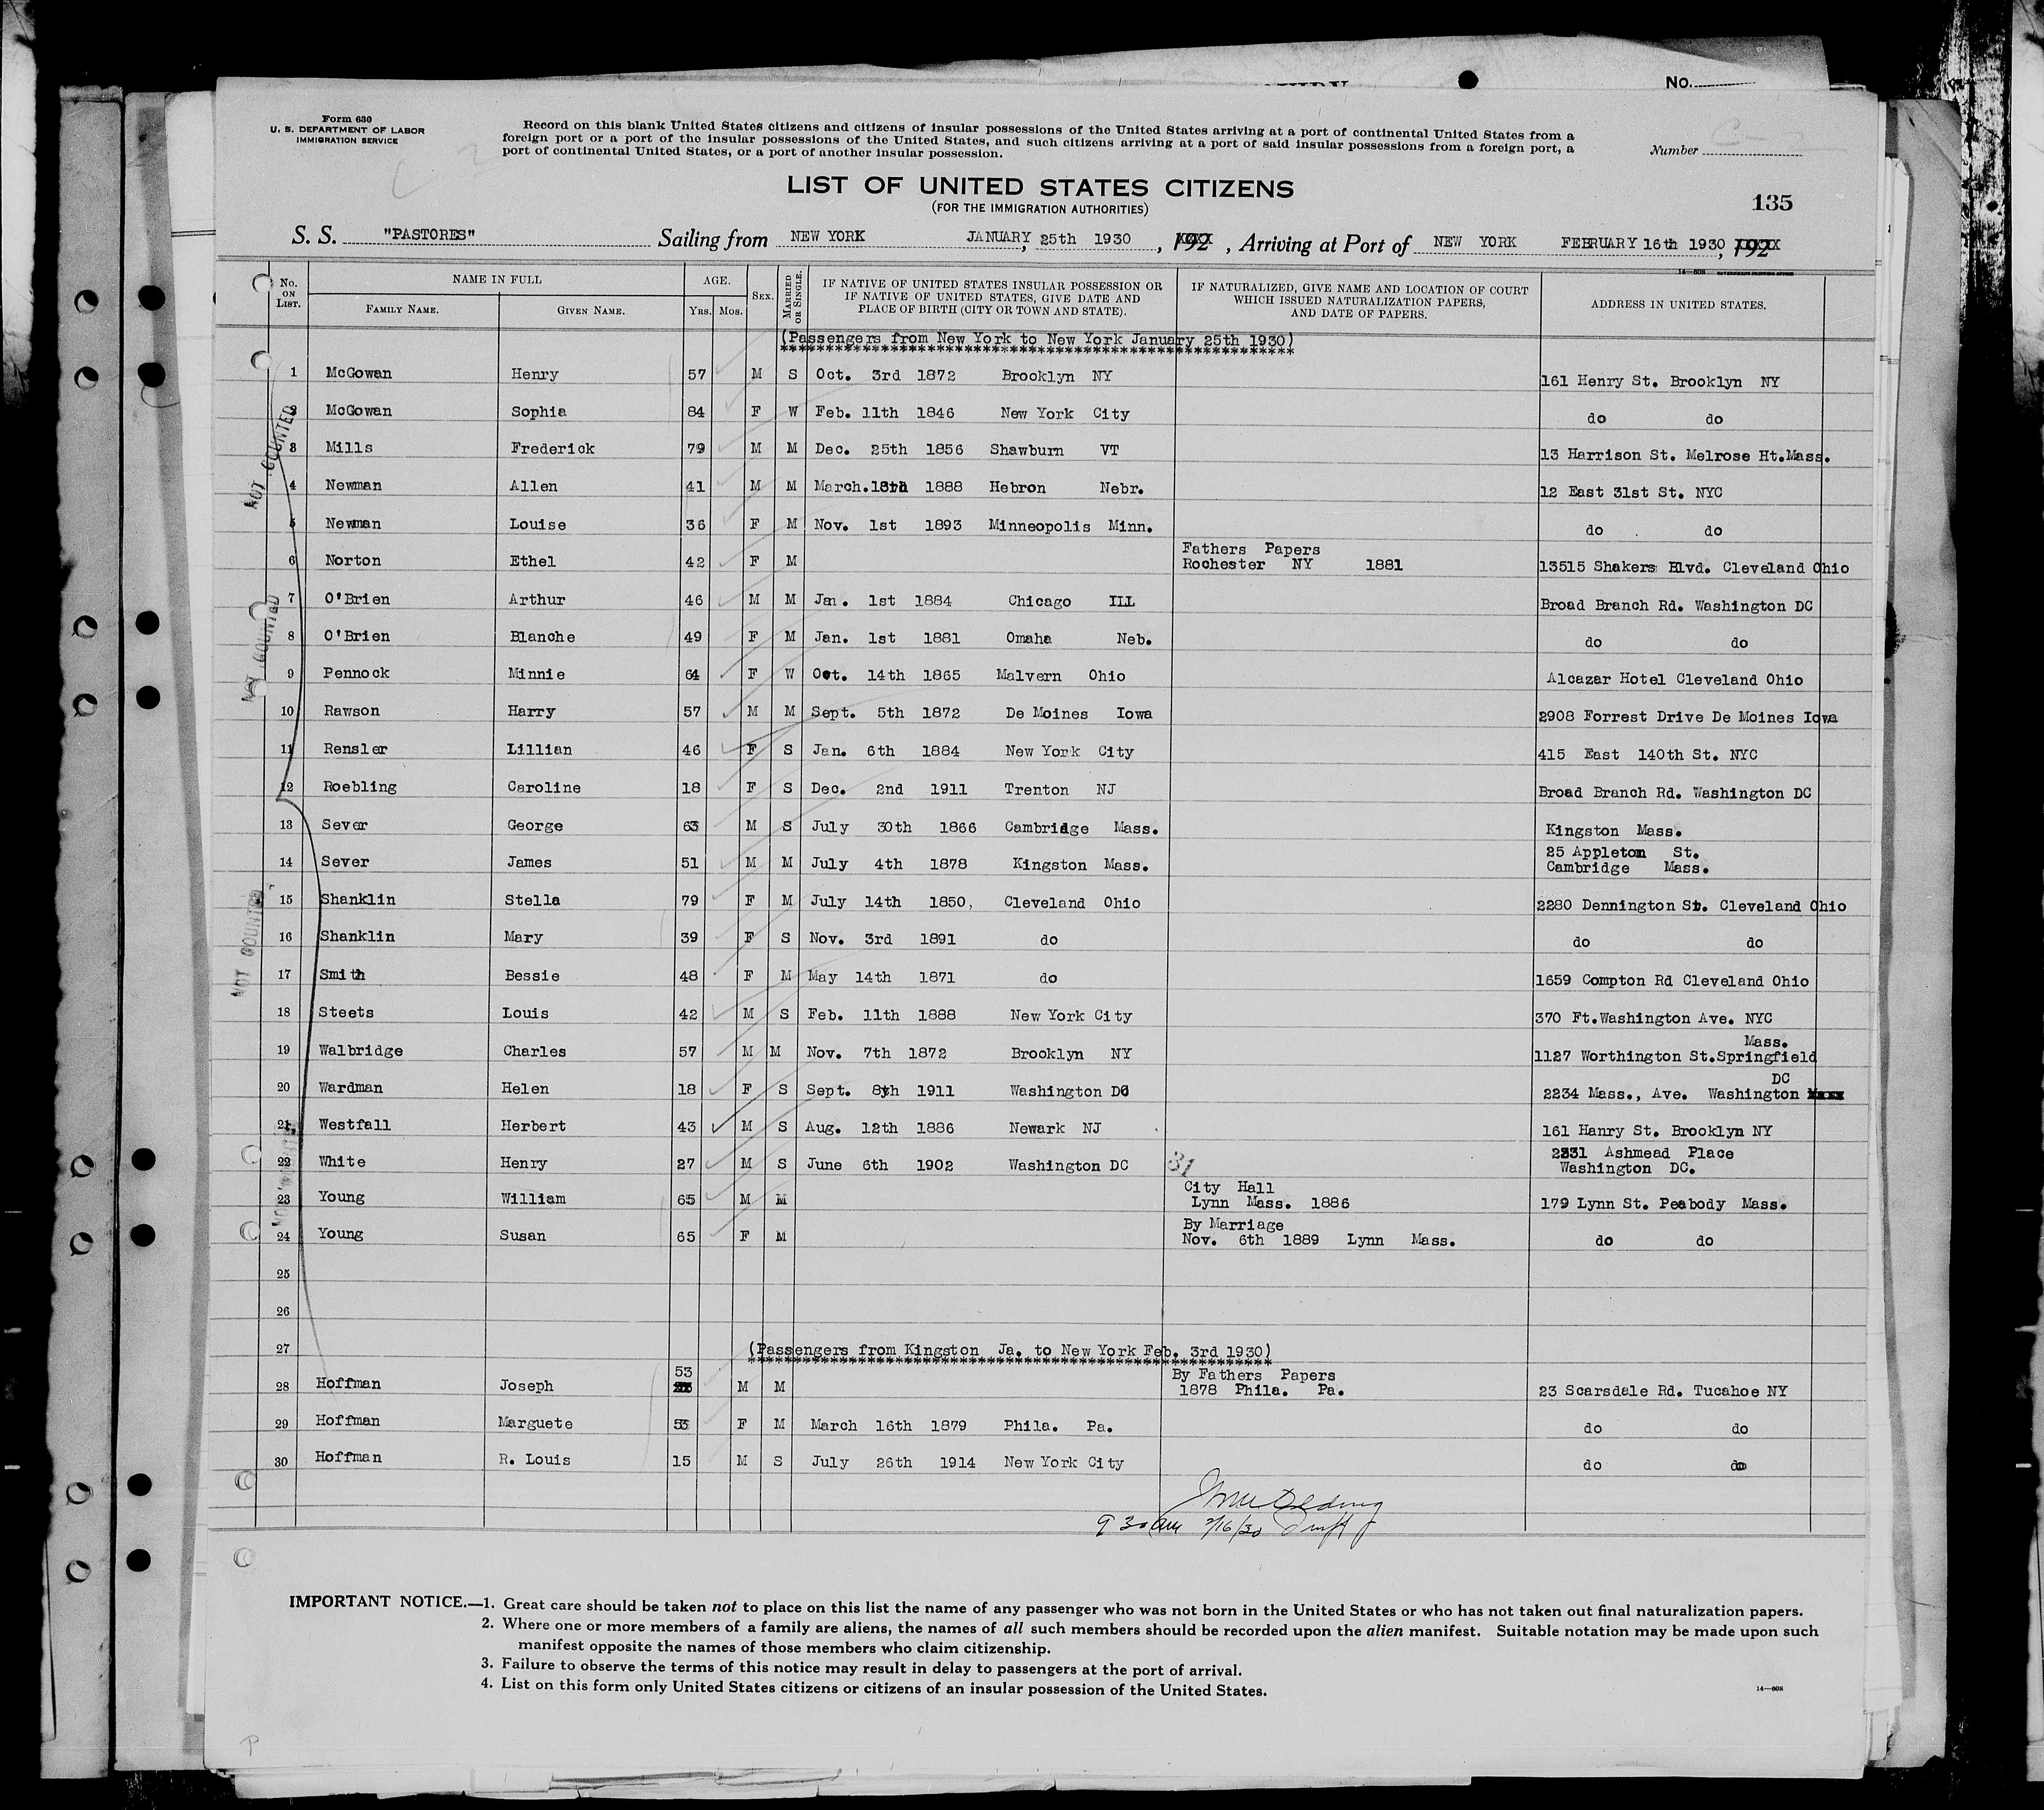 No.
Form 630
U. S. DEPARTMENT OF LABOR
IMMIGRATION SERVICE
Record on this blank United States citizens and citizens of insular possessions of the United States arriving at a port of continental United States from a
foreign port or a port of the insular possessions of the United States, and such citizens arriving at a port of said insular possessions from a foreign port, a
port of continental United States, or a port of another insular possession.
Number
LIST OF UNITED STATES CITIZENS
(FOR THE IMMIGRATION AUTHORITIES)
135
S. S. "PASTORES" Sailing from NEW YORK JANUARY 25th 1930, 192 , Arriving at Port of NEW YORK FEBRUARY 16th 1930, 192
14—608 GOVERNMENT PRINTING OFFICE
No. ON LIST. NAME IN FULL FAMILY NAME. GIVEN NAME. AGE. YRS. MOS. SEX. MARRIED OR SINGLE. IF NATIVE OF UNITED STATES INSULAR POSSESSION OR IF NATIVE OF UNITED STATES, GIVE DATE AND PLACE OF BIRTH (CITY OR TOWN AND STATE). IF NATURALIZED, GIVE NAME AND LOCATION OF COURT WHICH ISSUED NATURALIZATION PAPERS, AND DATE OF PAPERS. ADDRESS IN UNITED STATES.
(Passengers from New York to New York January 25th 1930)
1 McGowan Henry 57 M S Oct. 3rd 1872 Brooklyn NY 161 Henry St. Brooklyn NY
2 McGowan Sophia 84 F W Feb. 11th 1846 New York City do do
3 Mills Frederick 79 M M Dec. 25th 1856 Shawburn VT 13 Harrison St. Melrose Ht.Mass.
4 Newman Allen 41 M M March. 1888 Hebron Nebr. 12 East 31st St. NYC
5 Newman Louise 36 F M Nov. 1st 1893 Minneopolis Minn. do do
6 Norton Ethel 42 F M Fathers Papers Rochester NY 1881 13515 Shakers Blvd. Cleveland Ohio
7 O'Brien Arthur 46 M M Jan. 1st 1884 Chicago ILL Broad Branch Rd. Washington DC
8 O'Brien Blanche 49 F M Jan. 1st 1881 Omaha Neb. do do
9 Pennock Minnie 64 F W Oct. 14th 1865 Malvern Ohio Alcazar Hotel Cleveland Ohio
10 Rawson Harry 57 M M Sept. 5th 1872 De Moines Iowa 2908 Forrest Drive De Moines Iowa
11 Rensler Lillian 46 F S Jan. 6th 1884 New York City 415 East 140th St. NYC
12 Roebling Caroline 18 F S Dec. 2nd 1911 Trenton NJ Broad Branch Rd. Washington DC
13 Sever George 63 M S July 30th 1866 Cambridge Mass. Kingston Mass.
14 Sever James 51 M M July 4th 1878 Kingston Mass. 25 Appleton St. Cambridge Mass.
15 Shanklin Stella 79 F M July 14th 1850, Cleveland Ohio 2280 Dennington St. Cleveland Ohio
16 Shanklin Mary 39 F S Nov. 3rd 1891 do do do
17 Smith Bessie 48 F M May 14th 1871 do 1659 Compton Rd Cleveland Ohio
18 Steets Louis 42 M S Feb. 11th 1888 New York City 370 Ft.Washington Ave. NYC
19 Walbridge Charles 57 M M Nov. 7th 1872 Brooklyn NY 1127 Worthington St.Springfield Mass.
20 Wardman Helen 18 F S Sept. 8th 1911 Washington DC 2234 Mass., Ave. Washington DC
21 Westfall Herbert 43 M S Aug. 12th 1886 Newark NJ 161 Hanry St. Brooklyn NY
22 White Henry 27 M S June 6th 1902 Washington DC 31 2331 Ashmead Place Washington DC.
23 Young William 65 M M City Hall Lynn Mass. 1886 179 Lynn St. Peabody Mass.
24 Young Susan 65 F M By Marriage Nov. 6th 1889 Lynn Mass. do do
25
26
27 (Passengers from Kingston Ja. to New York Feb. 3rd 1930)
28 Hoffman Joseph 53 M M By Fathers Papers 1878 Phila. Pa. 23 Scarsdale Rd. Tucahoe NY
29 Hoffman Marguete M F March 16th 1879 Phila. Pa. do do
30 Hoffman R. Louis 15 M S July 26th 1914 New York City do do
NOT COUNTED
NOT COUNTED
NOT COUNTED
9 30 am 2/16/30
IMPORTANT NOTICE.—1. Great care should be taken not to place on this list the name of any passenger who was not born in the United States or who has not taken out final naturalization papers.
2. Where one or more members of a family are aliens, the names of all such members should be recorded upon the alien manifest. Suitable notation may be made upon such
manifest opposite the names of those members who claim citizenship.
3. Failure to observe the terms of this notice may result in delay to passengers at the port of arrival.
4. List on this form only United States citizens or citizens of an insular possession of the United States.
14—608
P